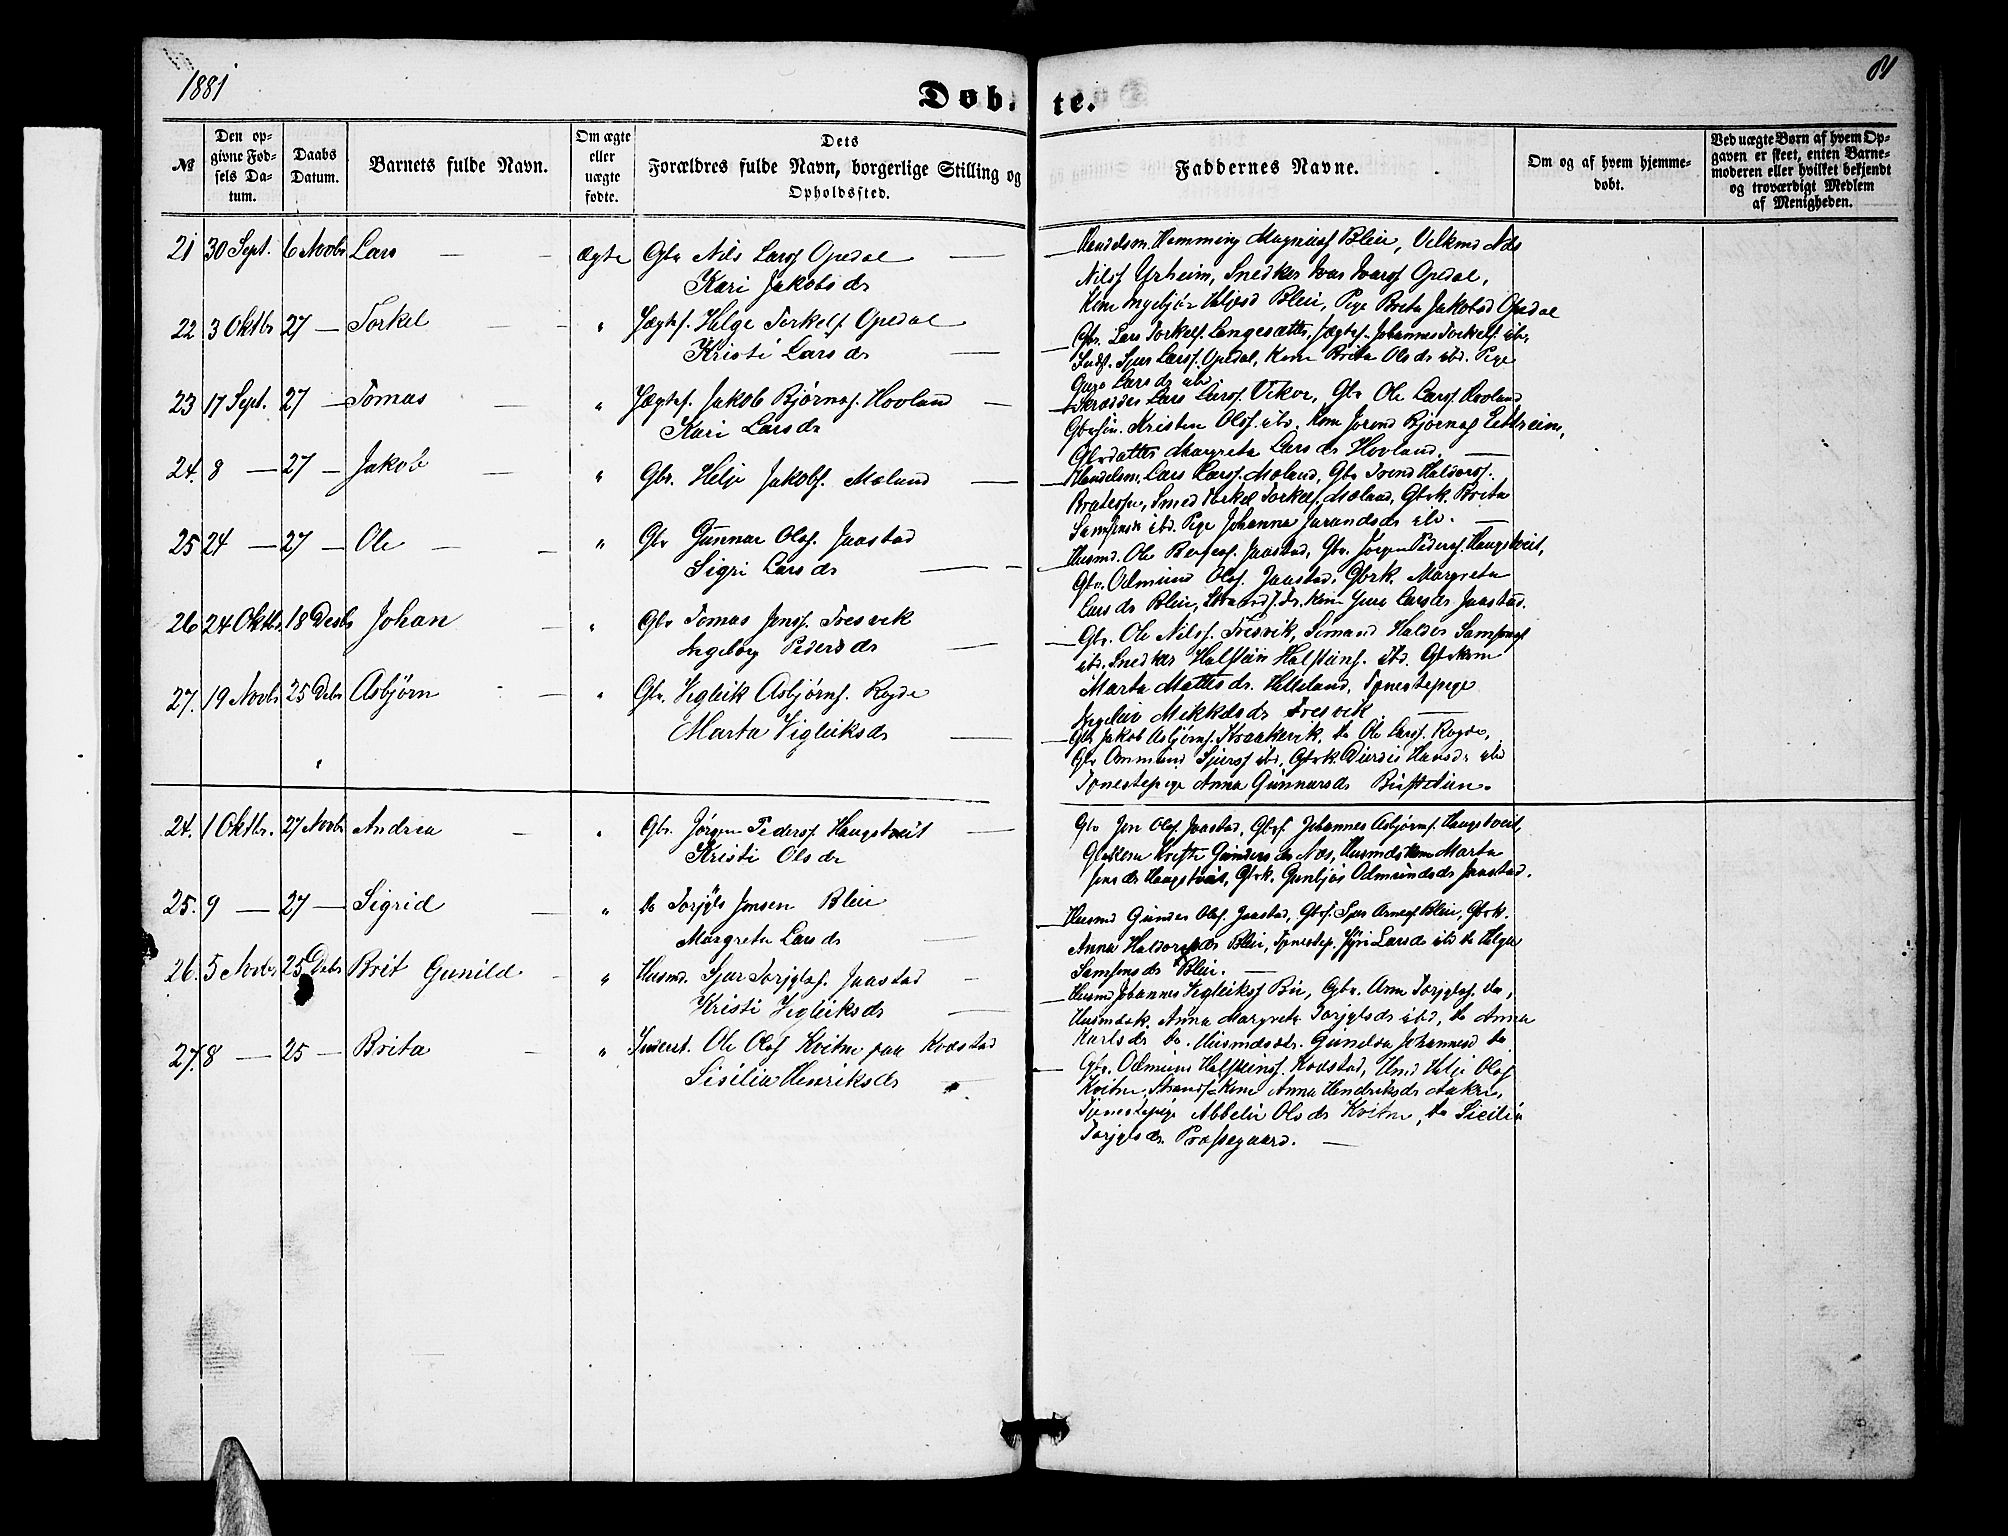 1881
Døbte.
81
№
Den opgivne Fødsels Datum.
Daabs Datum.
Barnets fulde Navn.
Om ægte eller uægte fødte.
Dets Forældres fulde Navn, borgerlige Stilling og Opholdssted.
Faddernes Navne.
Om og af hvem hjemmedøbt.
Ved uægte Børn af hvem Opgaven er skeet, enten Barnemoderen eller hvilket bekjendt og troværdigt Medlem af Menigheden.
21 30 Sept. 6 Novbr Lars — Ægte Gbr Nils Larss Opedal —
Kari Jakobsdr
Handelsm. Hemming Magnusf Bleie,
Nilsf Yrheim, Snedker Ivar Ivarsf Opedal,
Kone Ingebjør Bleie, Pige Brita Jakobsd Opedal
22 3 Oktbr 27 — Torkel — " Jægtsf. Helge Torkelf. Opedal
Kristi Larsdr —
Gbr. Lars Torkelf. Langesætter, Jægtsf. Johannes Torkelf. ibd,
Indf. Sjur Larsf. Opedal, Kone Brita Olsdr ibd. Pige
Guro Larsdr ibd
23 17 Sept. 27 — Tomas — " Jægtsf. Jakob Bjørnsf. Hovland —
Kari Larsdr
Skrædder Lars Larsf. Vikør, Gbr Ole Larsf Hovland,
Gbrsøn. Kristen Olsf. ibd. Kone Jorend Bjørnsf Eitheim,
Gbrdatter Margreta Larsdr Hovland. —
24. 8 — 27 — Jakob — " Gbr. Helje Jakobf. Mæland —
Handelsm. Lars Larsf. Mæland, Gbr Svend Haldorsf.
Smed Torkel Torkelf. Mæland, Gbrk. Brita
ibd. Pige Johanna Jarandsdr ibd. —
25 24 — 27 — Ole — " Gbr Gunnar Olsf. Jaastad
Sigri Larsdr —
Husmd. Ole Jaastad, Gbr. Jørgen Pedersf. Haugstveit,
Gbr. Odmund Olsf. Jaastad, Gbrk. Margreta
Larsdr Bleie, Kone Guro Larsdr Jaastad.
26 24 Oktbr. 18 Desbr Johan — " Gbr Tomas Jensf. Tresvik
Ingeborg Pedersdr —
Gbr. Ole Nilsf. Tresvik, Sømand Haldor Samsonsf
ibd. Snedker Halstein Halsteinf. ibd. Gbrkone
Marta Mattisdr. Helleland, Tjenestepige
Mikkelsdr Tresvik —
27. 19 Novbr 25 Debr Asbjørn — " Gbr. Vigleik Asbjørnf. Rogde
Marta Vigleiksdr —
Gbr Jakob Asbjørnf. Kraakevik, do Ole Larsf. Rogde,
Gbr Ommund Sjursf ibd, Gbrk. Durdei Hansdr ibd
Tjenestepige Anna Gunnarsdr Bustetun.
24. 1 Oktbr. 27 Novbr Andrea — " Gbr. Jørgen Pedersf Haugstveit —
Kristi Olsdr
Gbr Jon Olsf Jaastad, Gbrf. Johannes Asbjørnf. Haugstveit,
Gbrkone Gundersdr Næs, Husmdskone Marta
Jensdr Haugstveit, Gbrk. Gunbjør Odmundsdr Jaastad.
25. 9 — 27 — Sigrid — " do Torjyls Jonsen Bleie
Margreta Larsdr —
Husmd Gunder Olsf. Jaastad, Gbrf. Sjur Arnesf Bleie, Gbrk.
Anna Haldorsdr Bleie, Tjenestep. Larsdr ibd do Helga
Samsonsdr Bleie. —
26. 5 Novbr 25 Debr Brit Gunild — " Husmd. Sjur Torjylsf. Jaastad —
Kristi Vigleiksdr —
Husmd Johannes Vigleiksf Bu, Gbr. Arne Torjylsf. do,
Husmdsk. Anna Margreta Torjylsdr ibd, do Anna
Karlsdr do. Husmdsdtr. Gunilda Johannesd do
27. 8 — 25 — Brita — " Inderst. Ole Olsf Kvitne paa Kvdstad
Sisilia Henriksdr —
Gbr. Odmund Halsteinsf. Kvdstad, Helje Olsf
Kvitne, Kone Anna Hendriksdr Aakre,
Tjenestepige Abbelu Olsdr Kvitne, do Sicilia
Torjylsdr Prestegaard. —